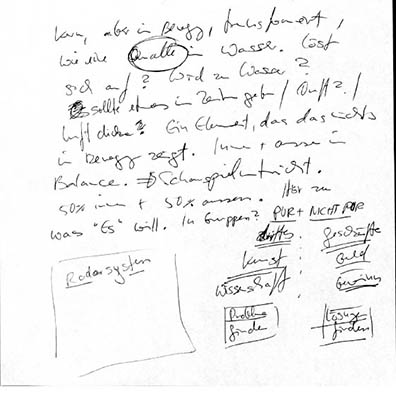 kann, aber in Bewegg, transformiert,
wie eine Qualle in Wasser. Löst
sich auf? Wird zu Wasser?
sollte etwas in Zentr geben / Duft? /
Luft dichte? Ein Element, das das nichts
in Bewegg zeigt. Innen + aussen in
Balance. → Schauspielunterricht.
50% innen + 50% aussen. Hör zu
was "Es" will. In Gruppen? PUR + NICHT PUR
: Geschäfte
Kunst : Geld
Wissenschaft : Gewinn
Radarsystem
Probleme finden
Lösungen finden